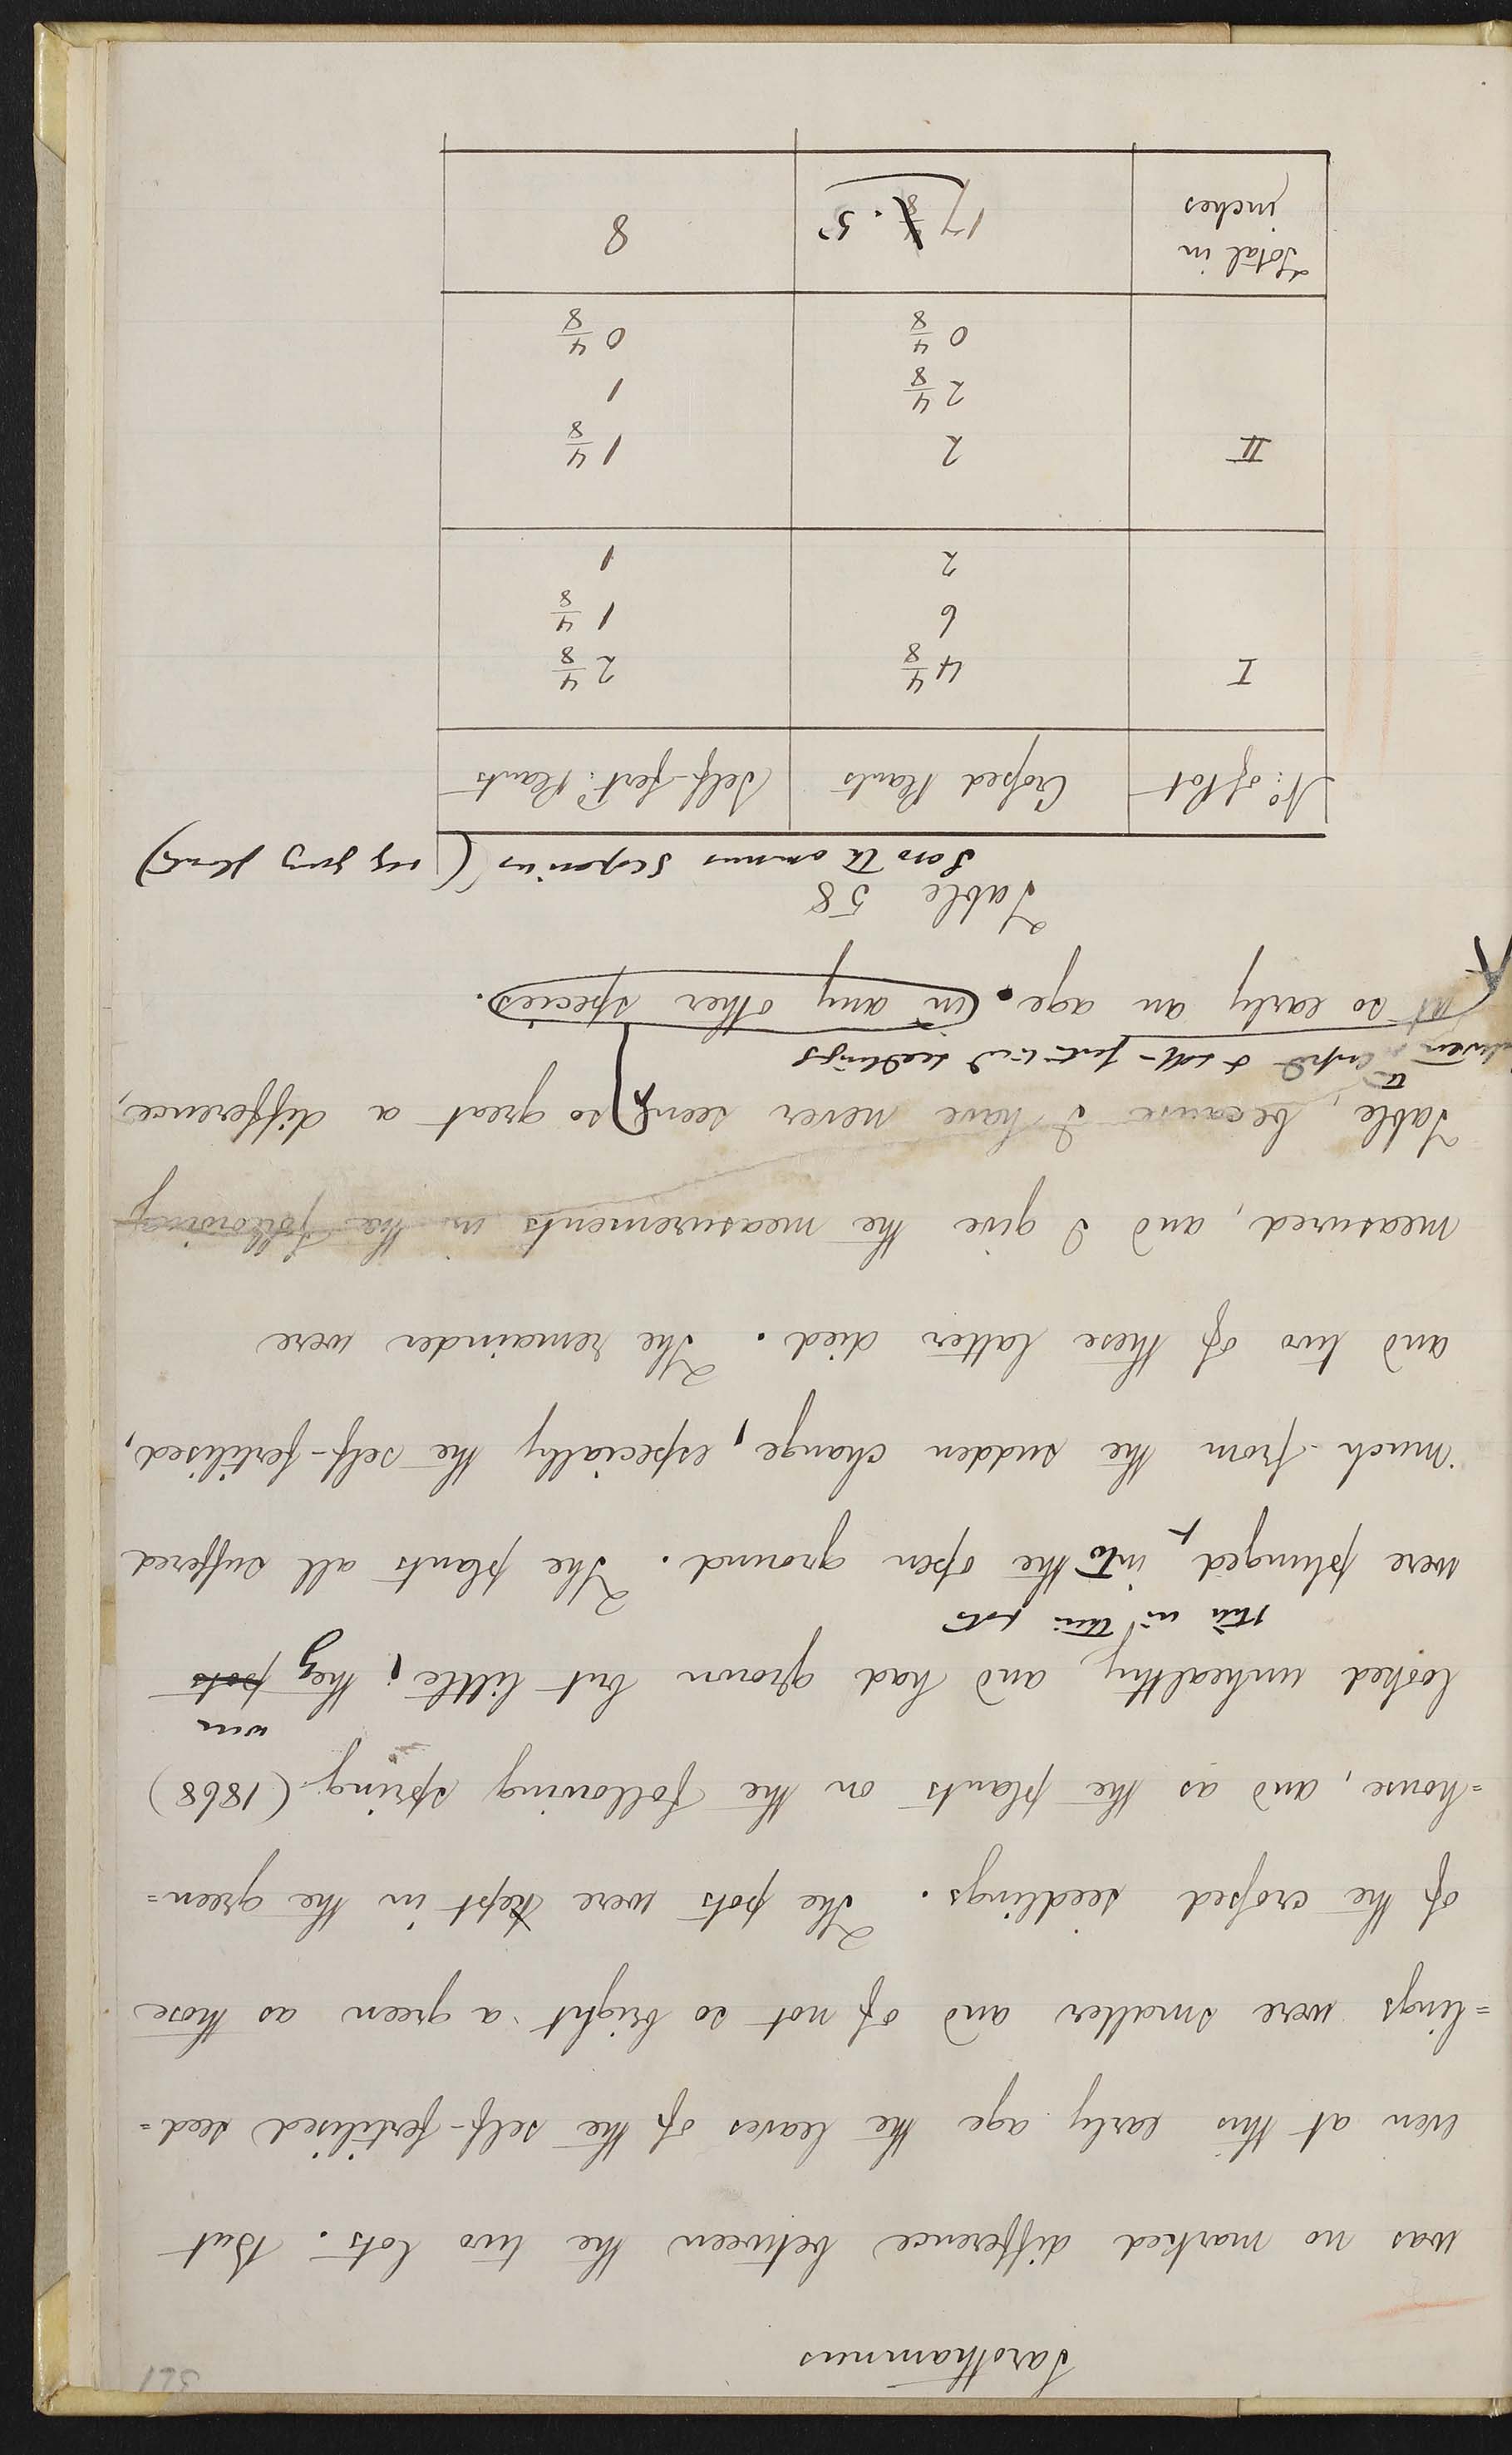 321
Sarothamnus
was no marked difference between the two lots. But
even at this early age the leaves of the self-fertilised seed=
=lings were smaller and of not so bright a green as those
of the crossed seedlings. The pots were kept in the green=
=house, and as the plants on the following spring (1868)
looked unhealthy and had grown but little, they pots
were
still in their pots
were plunged into the open ground. The plants all suffered
much from the sudden change, especially the self-fertilised,
and two of these latter died. The remainder were
measured, and I give the measurements in the following
Table, because I have never seen so great a difference,
between the crossed & self-fertilised seedlings
at so early an age. in any other species.
Table 58
Sarothamnus scoparius (very young plants)
No: of Pot Crossed Plants Self-fert.d Plants
I 4 4/8 2 4/8
6 1 4/8
2 1
II 2 1 4/8
2 4/8 1
0 4/8 0 4/8
Total in
inches 17 4/8 .5 8